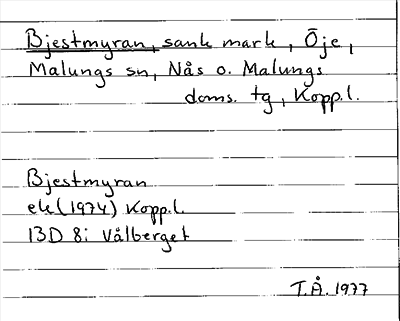 Bjestmyran, sank mark, Öje,
Malungs sn, Nås o. Malungs
doms. tg, Kopp.l.
Bjestmyran
ek (1974) Kopp.l.
13D 8i Vålberget
T.Å. 1977